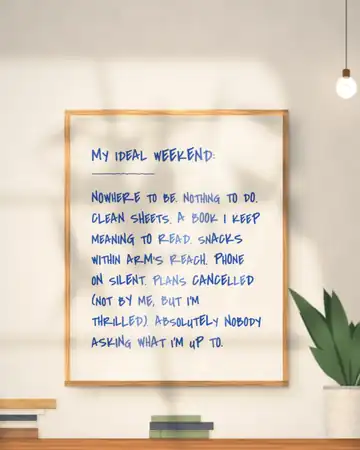 MY IDEAL WEEKEND:
NOWHERE TO BE. NOTHING TO DO.
CLEAN SHEETS. A BOOK I KEEP
MEANING TO READ. SNACKS
WITHIN ARM'S REACH. PHONE
ON SILENT. PLANS CANCELLED
(NOT BY ME, BUT I'M
THRILLED). ABSOLUTELY NOBODY
ASKING WHAT I'M UP TO.